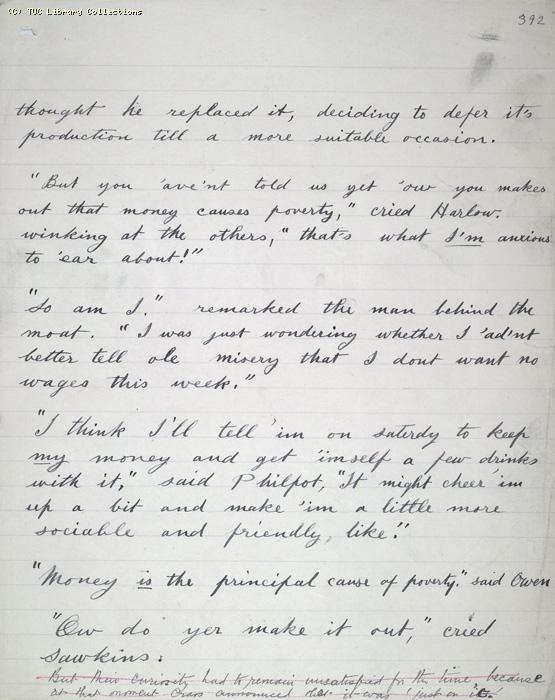 (C) TUC Library Collections
392
thought he replaced it, deciding to defer it's
production till a more suitable occasion.
"But you 'ave'nt told us yet 'ow you makes
out that money causes poverty," cried Harlow.
winking at the others, "that's what I'm anxious
to 'ear about!"
"So am I." remarked the man behind the
moat. "I was just wondering whether I 'ad'nt
better tell ole misery that I dont want no
wages this week."
"I think I'll tell 'im on saterdy to keep
my money and get 'imself a few drinks
with it," said Philpot, "It might cheer 'im
up a bit and make 'im a little more
sociable and friendly, like."
"Money is the principal cause of poverty." said Owen
"'Ow do yer make it out," cried
Sawkins:
But their curiosity had to remain unsatisfied for the time, because
at that moment Crass announced that it was 'just on it'.